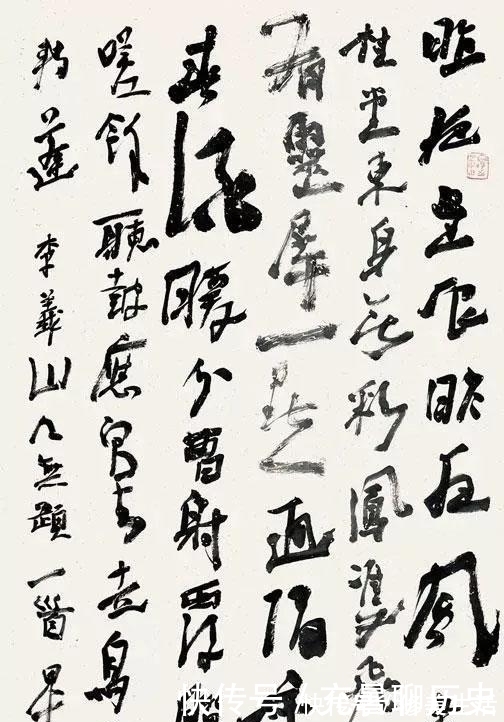 昨夜星辰昨夜風
桂堂東身無彩鳳雙飛
有靈犀一點通隔座
春酒暖分曹射覆
嗟余聽鼓應官去走馬
轉蓬 李義山無題一首
快传号